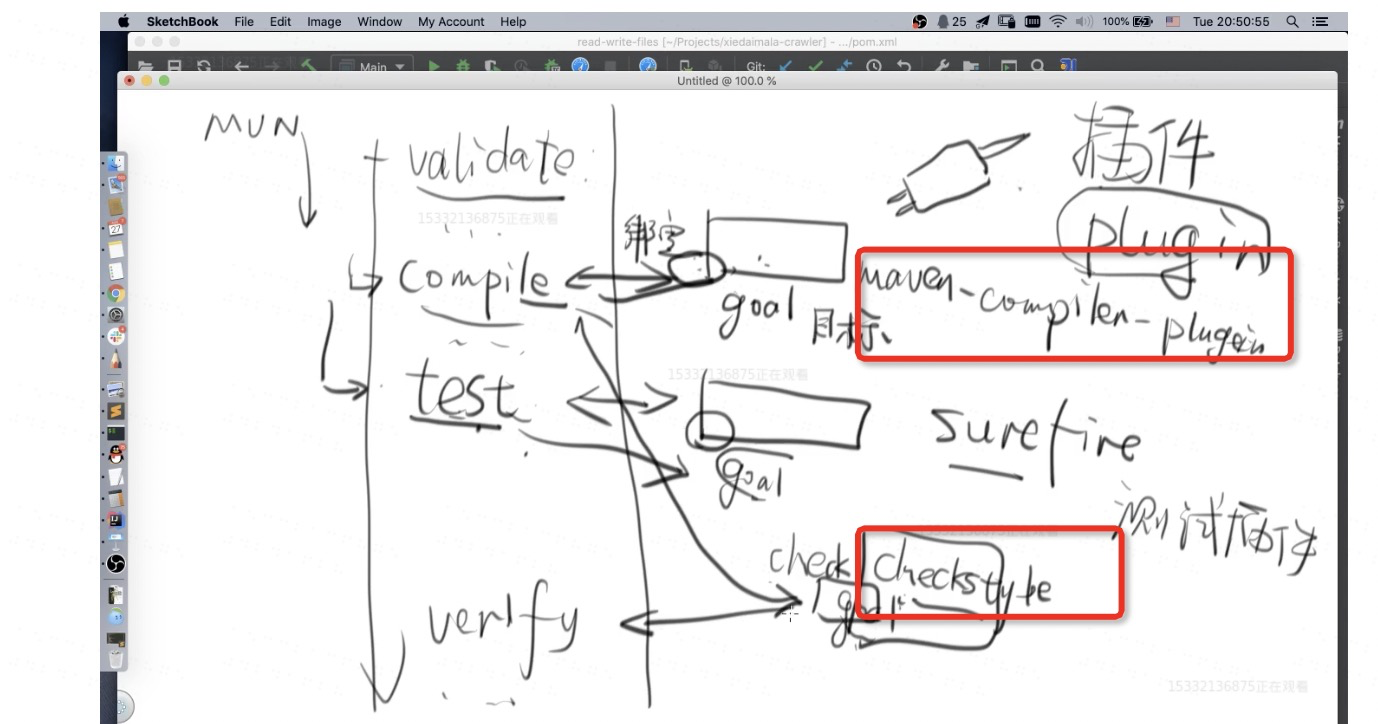 SketchBook File Edit Image Window My Account Help 25 100% Tue 20:50:55
read-write-files [~/Projects/xiedaimala-crawler] - .../pom.xml
Main Git:
Untitled @ 100.0 %
MVN
validate
15332136875正在观看
compile
绑定
goal 目标
插件
plugin
maven-compiler-plugin
15332136875正在观看
test
goal
surefire
测试插件
verify
check
checkstyle
goal
15332136875正在观看